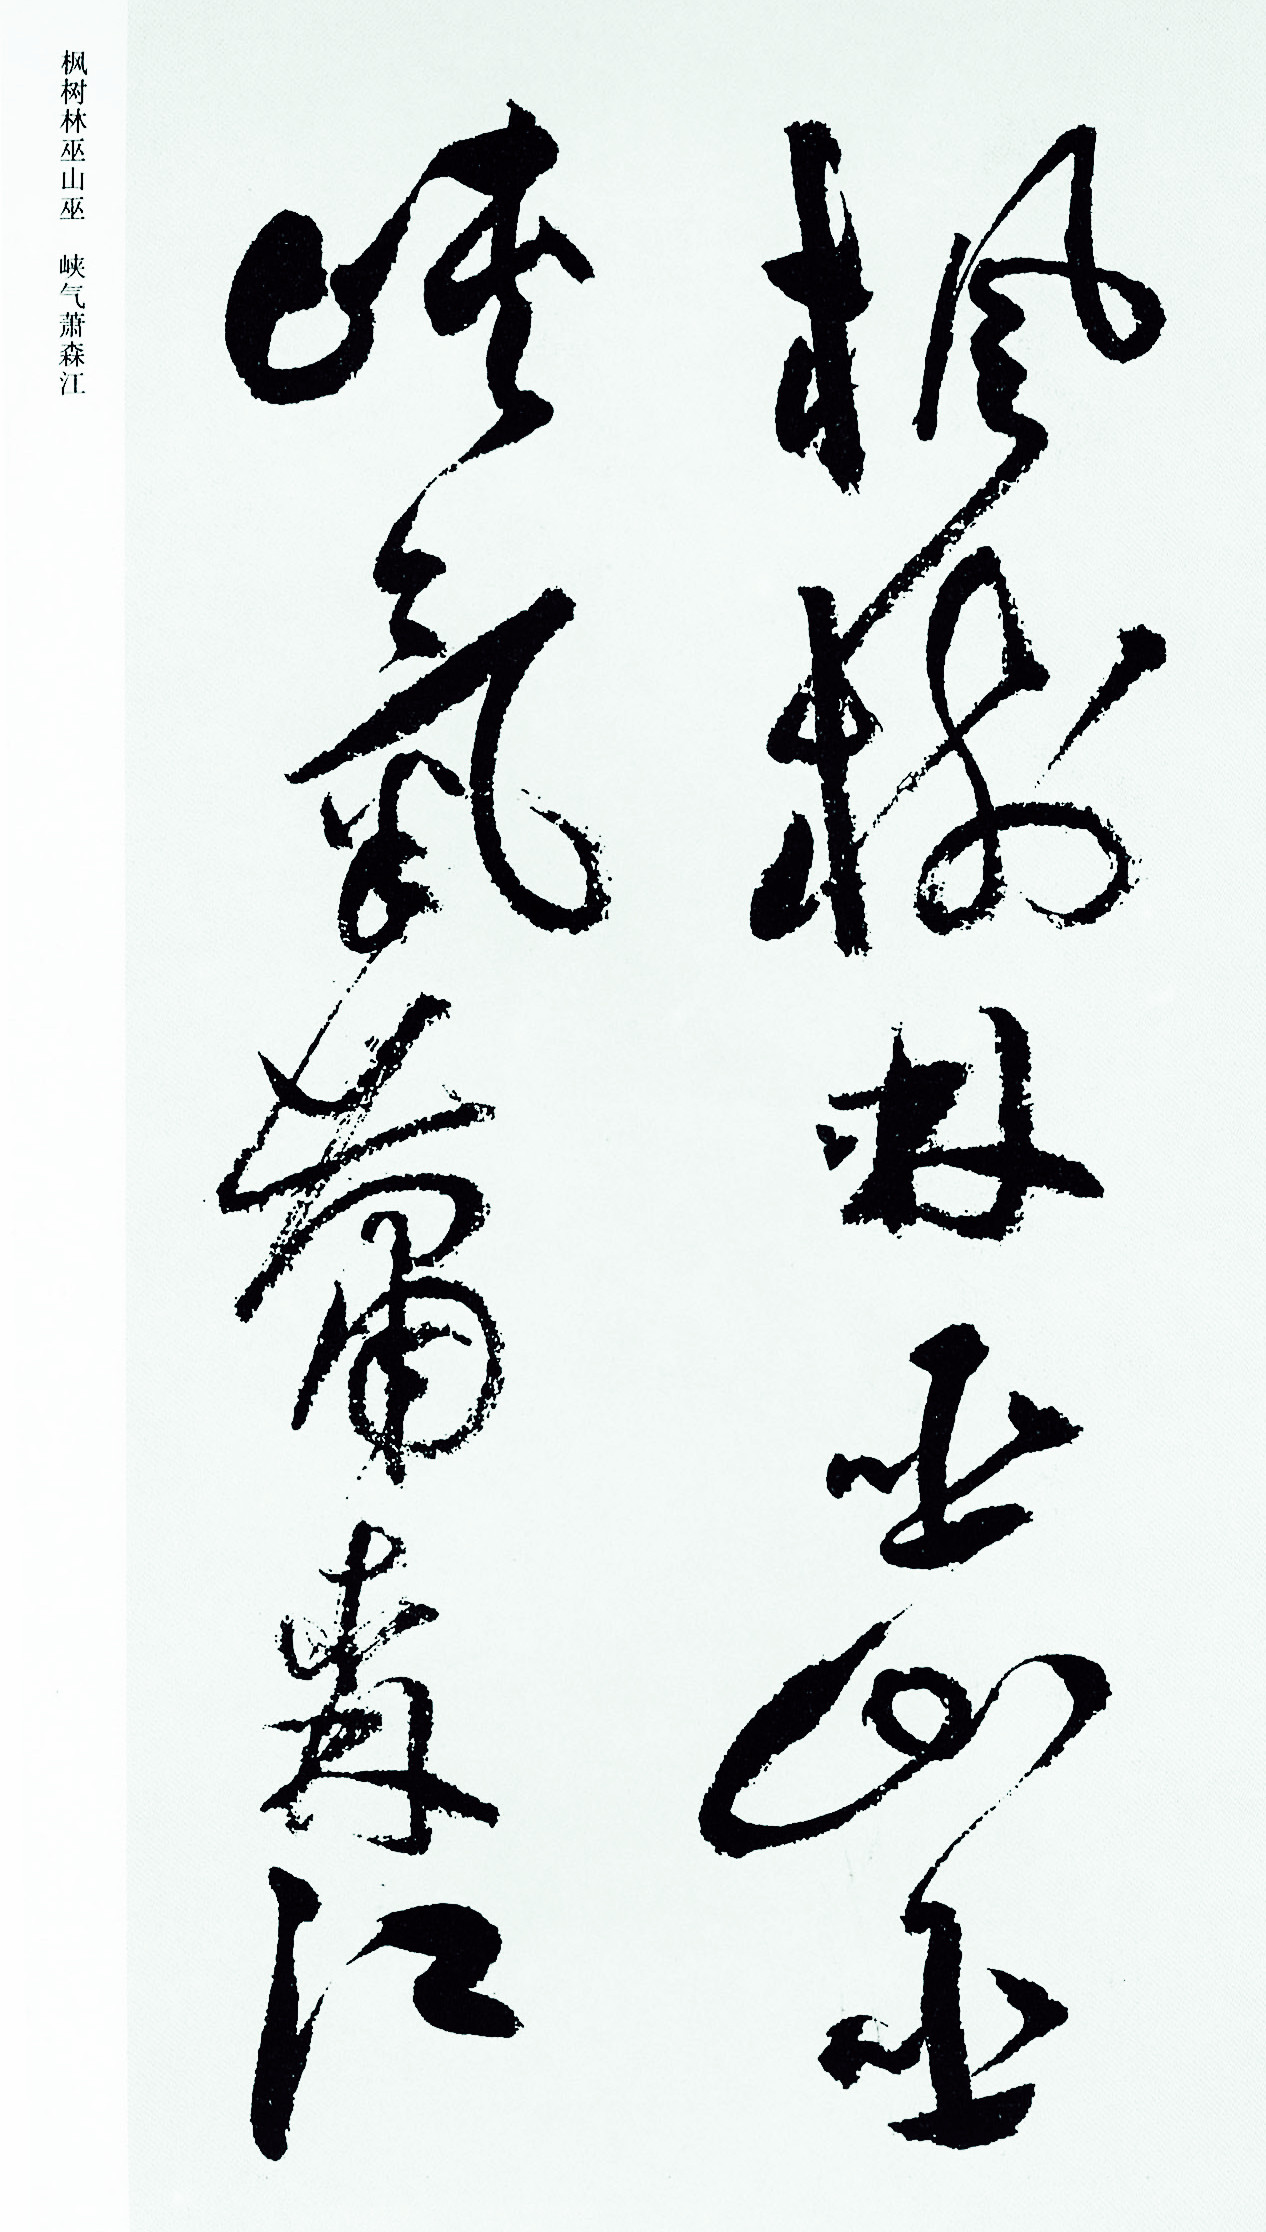 楓樹林巫山巫
峽氣蕭森江
枫树林巫山巫　峡气萧森江